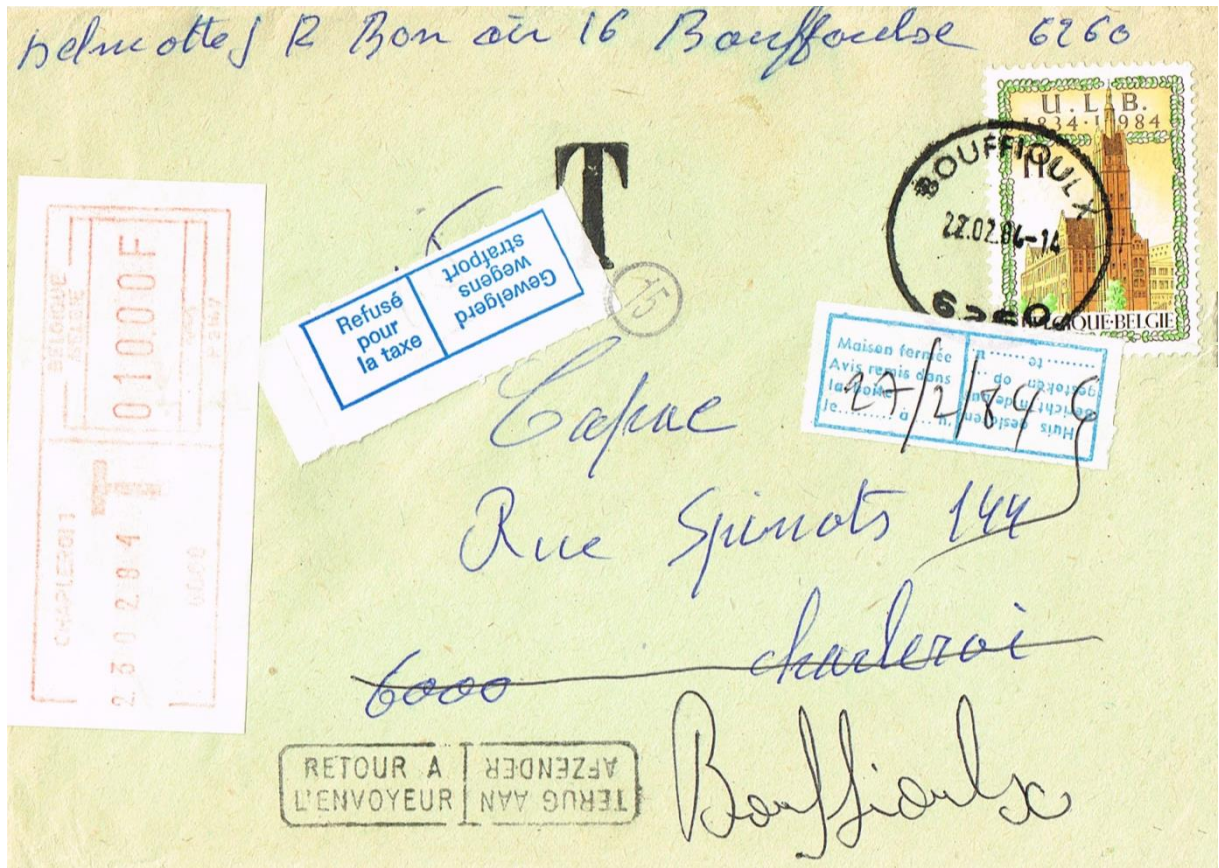 Delmotte J R Bon air 16 Bouffioulx 6260
U.L.B.
1834-1984
11F
BELGIQUE-BELGIE
BOUFFIOULX
22.02.84-14
T
15
Refusé
pour
la taxe
Geweigerd
wegens
strafport
Maison fermée
Avis remis dans
la boîte
le......... à ....u.
Huis gesloten
Bericht in de bus
gestoken op
........ te ........ u.
27/2/84
BELGIQUE
BELGIE
0100.0F
CHARLEROI 1
230284
6000
Rue Spinots 144
6000 charleroi
RETOUR A
L'ENVOYEUR
TERUG AAN
AFZENDER
Bouffioulx